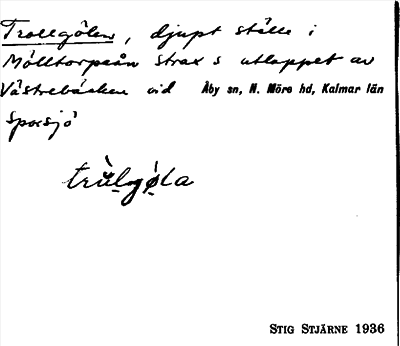 Trollgölen, djupt ställe i
Mölltorpsån strax s utloppet av
Västrebäcken vid Åby sn, N. Möre hd, Kalmar län
Sporsjö
trùlgø̀la
STIG STJÄRNE 1936